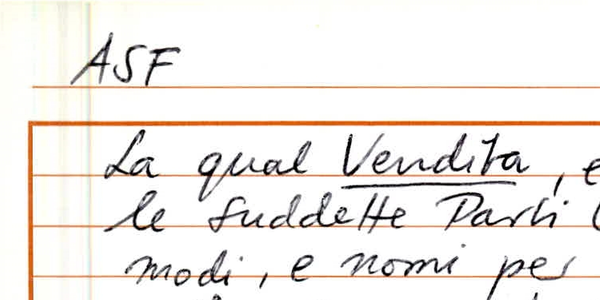 ASF
La qual Vendita, e
le suddette Parti
modi, e nomi per